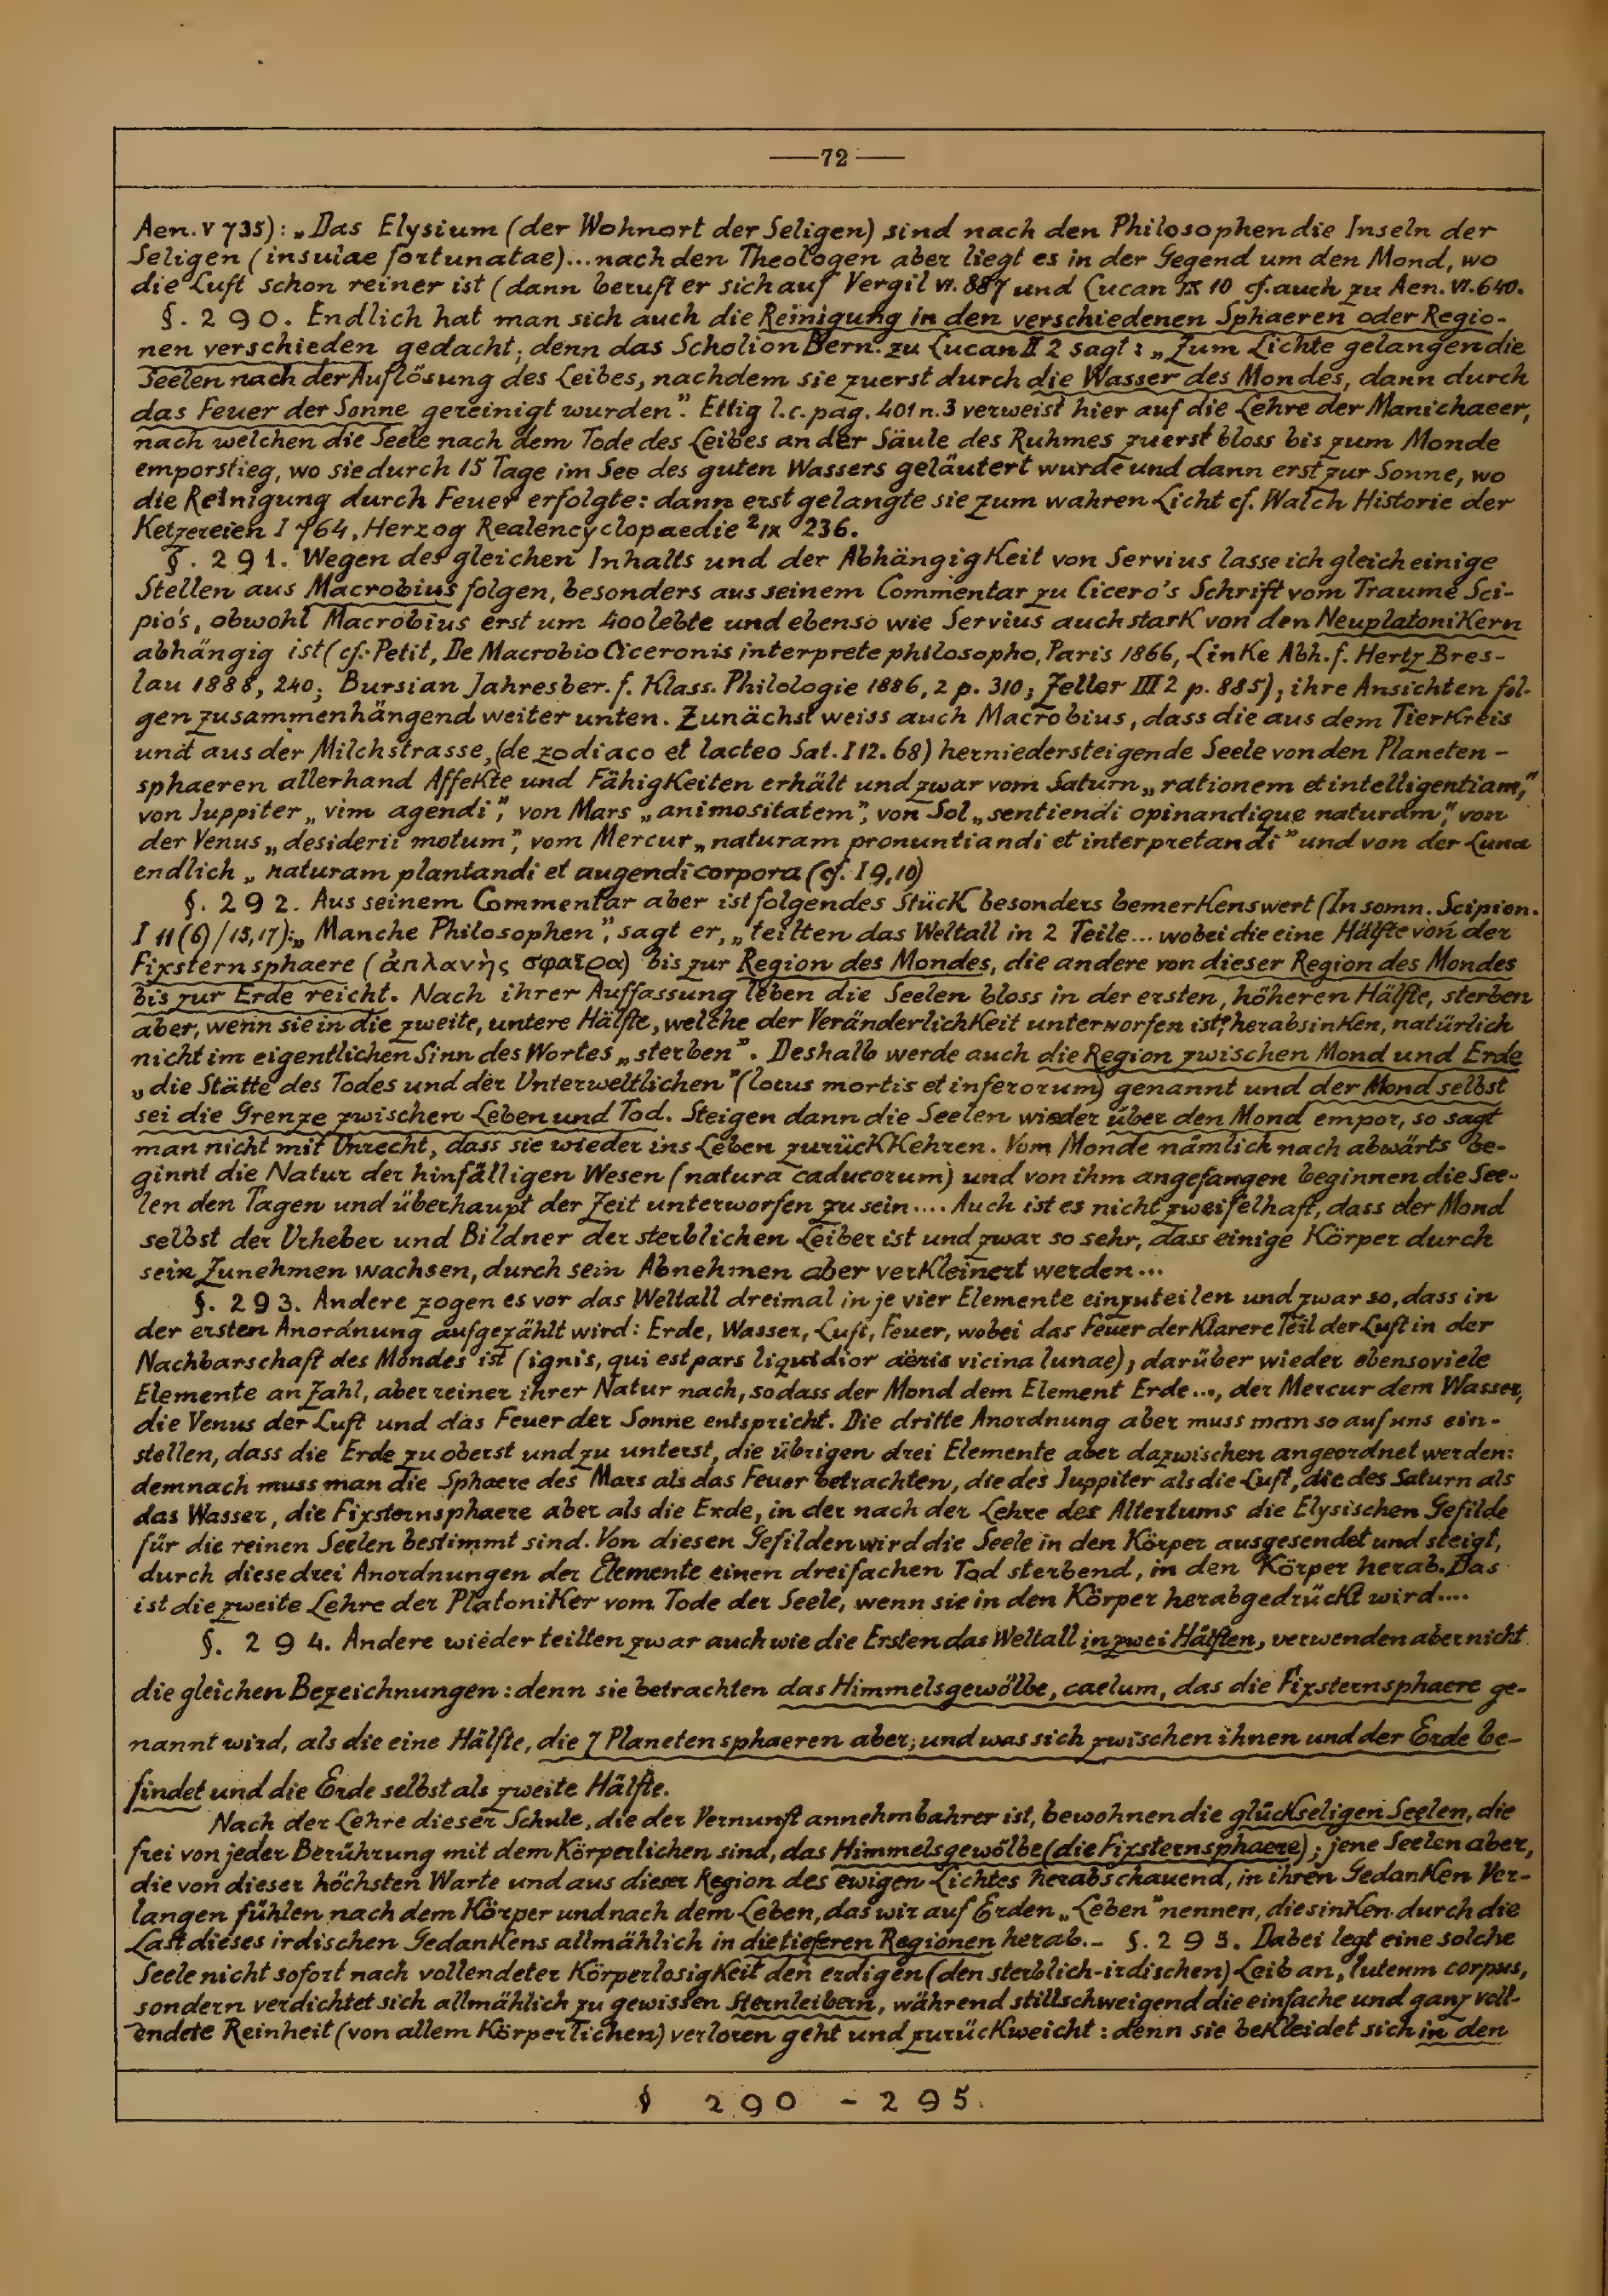 —72—
Aen. V 735): „Das Elysium (der Wohnort der Seligen) sind nach den Philosophen die Inseln der
Seligen (insulae fortunatae)... nach den Theologen aber liegt es in der Gegend um den Mond, wo
die Luft schon reiner ist (dann beruft er sich auf Vergil VI. 887 und Lucan IX 10 cf. auch zu Aen. VI. 640.
§. 290. Endlich hat man sich auch die Reinigung in den verschiedenen Sphaeren oder Regio-
nen verschieden gedacht; denn das Scholion Bern. zu Lucan II 2 sagt: „Zum Lichte gelangen die
Seelen nach der Auflösung des Leibes, nachdem sie zuerst durch die Wasser des Mondes, dann durch
das Feuer der Sonne gereinigt wurden". Ettig l. c. pag. 401 n. 3 verweist hier auf die Lehre der Manichaeer,
nach welchen die Seele nach dem Tode des Leibes an der Säule des Ruhmes zuerst bloss bis zum Monde
emporstieg, wo sie durch 15 Tage im See des guten Wassers geläutert wurde und dann erst zur Sonne, wo
die Reinigung durch Feuer erfolgte: dann erst gelangte sie zum wahren Licht cf. Walch Historie der
Ketzereien I 764, Herzog Realencyclopaedie ² IX 236.
§. 291. Wegen des gleichen Inhalts und der Abhängigkeit von Servius lasse ich gleich einige
Stellen aus Macrobius folgen, besonders aus seinem Commentar zu Cicero's Schrift vom Traume Sci-
pio's, obwohl Macrobius erst um 400 lebte und ebenso wie Servius auch stark von den Neuplatonikern
abhängig ist (cf. Petit, De Macrobio Ciceronis interprete philosopho, Paris 1866, Linke Abh. f. Hertz Bres-
lau 1888, 240; Bursian Jahresber. f. Klass. Philologie 1886, 2 p. 310; Zeller III 2 p. 885); ihre Ansichten fol-
gen zusammenhängend weiter unten. Zunächst weiss auch Macrobius, dass die aus dem Tierkreis
und aus der Milchstrasse, (de zodiaco et lacteo Sat. I 12. 68) herniedersteigende Seele von den Planeten-
sphaeren allerhand Affekte und Fähigkeiten erhält und zwar vom Saturn „rationem et intelligentiam,"
von Juppiter „vim agendi", von Mars „animositatem", von Sol „sentiendi opinandique naturam", von
der Venus „desiderii motum", vom Mercur „naturam pronuntiandi et interpretandi" und von der Luna
endlich „naturam plantandi et augendi corpora (cf. I 9, 10)
§. 292. Aus seinem Commentar aber ist folgendes Stück besonders bemerkenswert (In somn. Scipion.
I 11 (6) / 15, 17): „Manche Philosophen", sagt er, „teilten das Weltall in 2 Teile... wobei die eine Hälfte von der
Fixsternsphaere (ἀπλανὴς σφαῖρα) bis zur Region des Mondes, die andere von dieser Region des Mondes
bis zur Erde reicht. Nach ihrer Auffassung leben die Seelen bloss in der ersten, höheren Hälfte, sterben
aber, wenn sie in die zweite, untere Hälfte, welche der Veränderlichkeit unterworfen ist, herabsinken, natürlich
nicht im eigentlichen Sinn des Wortes „sterben". Deshalb werde auch die Region zwischen Mond und Erde
„die Stätte des Todes und der Unterweltlichen" (locus mortis et inferorum) genannt und der Mond selbst
sei die Grenze zwischen Leben und Tod. Steigen dann die Seelen wieder über den Mond empor, so sagt
man nicht mit Unrecht, dass sie wieder ins Leben zurückkehren. Vom Monde nämlich nach abwärts be-
ginnt die Natur der hinfälligen Wesen (natura caducorum) und von ihm angefangen beginnen die See-
len den Tagen und überhaupt der Zeit unterworfen zu sein.... Auch ist es nicht zweifelhaft, dass der Mond
selbst der Urheber und Bildner der sterblichen Leiber ist und zwar so sehr, dass einige Körper durch
sein Zunehmen wachsen, durch sein Abnehmen aber verkleinert werden...
§. 293. Andere zogen es vor das Weltall dreimal in je vier Elemente einzuteilen und zwar so, dass in
der ersten Anordnung aufgezählt wird: Erde, Wasser, Luft, Feuer, wobei das Feuer der klarere Teil der Luft in der
Nachbarschaft des Mondes ist (ignis, qui est pars liquidior aëris vicina lunae); darüber wieder ebensoviele
Elemente an Zahl, aber reiner ihrer Natur nach, sodass der Mond dem Element Erde..., der Mercur dem Wasser,
die Venus der Luft und das Feuer der Sonne entspricht. Die dritte Anordnung aber muss man so auf uns ein-
stellen, dass die Erde zu oberst und zu unterst, die übrigen drei Elemente aber dazwischen angeordnet werden:
demnach muss man die Sphaere des Mars als das Feuer betrachten, die des Juppiter als die Luft, die des Saturn als
das Wasser, die Fixsternsphaere aber als die Erde, in der nach der Lehre des Altertums die Elysischen Gefilde
für die reinen Seelen bestimmt sind. Von diesen Gefilden wird die Seele in den Körper ausgesendet und steigt,
durch diese drei Anordnungen der Elemente einen dreifachen Tod sterbend, in den Körper herab. Das
ist die zweite Lehre der Platoniker vom Tode der Seele, wenn sie in den Körper herabgedrückt wird....
§. 294. Andere wieder teilten zwar auch wie die Ersten das Weltall in zwei Hälften, verwenden aber nicht
die gleichen Bezeichnungen: denn sie betrachten das Himmelsgewölbe, caelum, das die Fixsternsphaere ge-
nannt wird, als die eine Hälfte, die 7 Planetensphaeren aber, und was sich zwischen ihnen und der Erde be-
findet und die Erde selbst als zweite Hälfte.
Nach der Lehre dieser Schule, die der Vernunft annehmbahrer ist, bewohnen die glückseligen Seelen, die
frei von jeder Berührung mit dem Körperlichen sind, das Himmelsgewölbe (die Fixsternsphaere); jene Seelen aber,
die von dieser höchsten Warte und aus dieser Region des ewigen Lichtes herabschauend, in ihren Gedanken Ver-
langen fühlen nach dem Körper und nach dem Leben, das wir auf Erden „Leben" nennen, die sinken durch die
Last dieses irdischen Gedankens allmählich in die tieferen Regionen herab. – §. 295. Dabei legt eine solche
Seele nicht sofort nach vollendeter Körperlosigkeit den erdigen (den sterblich-irdischen) Leib an, luteum corpus,
sondern verdichtet sich allmählich zu gewissen Sternleibern, während stillschweigend die einfache und ganz voll-
endete Reinheit (von allem Körperlichen) verloren geht und zurückweicht: denn sie bekleidet sich in den
§ 290 - 295.